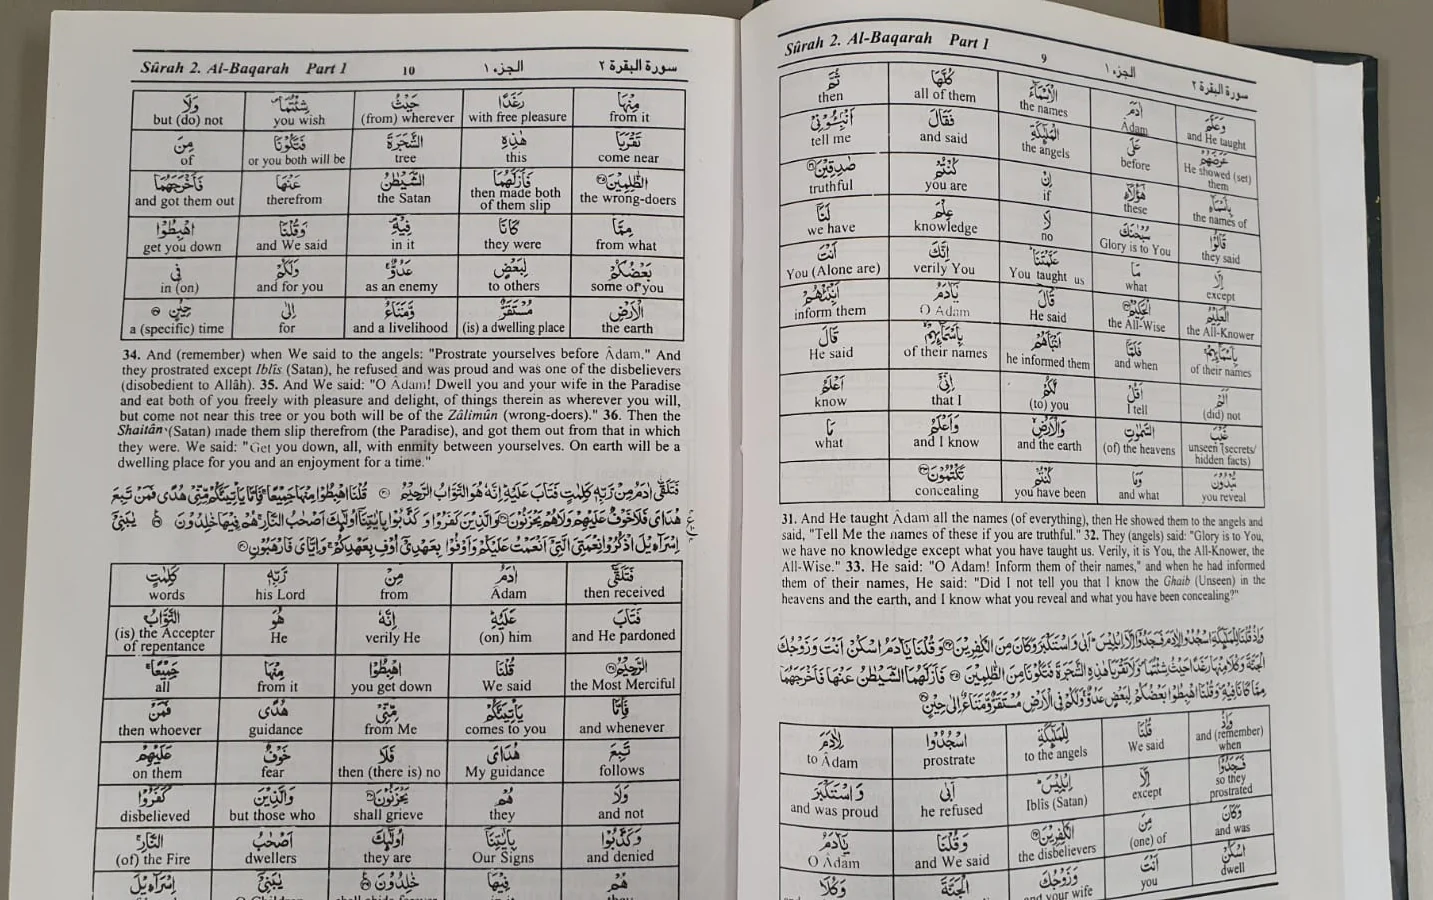 Sûrah 2. Al-Baqarah Part 1 10 الجزء ١ سورة البقرة ٢
وَلَا شِئْتُمَا حَيْثُ رَغَدًا مِنْهَا
but (do) not you wish (from) wherever with free pleasure from it
مِنَ فَتَكُوْنَا الشَّجَرَةَ هٰذِهِ تَقْرَبَا
of or you both will be tree this come near
فَاَخْرَجَهُمَا عَنْهَا الشَّيْطٰنُ فَاَزَلَّهُمَا الظّٰلِمِيْنَ
and got them out therefrom the Satan then made both of them slip the wrong-doers
اهْبِطُوْا وَقُلْنَا فِيْهِ كَانَا مِمَّا
get you down and We said in it they were from what
فِى وَلَكُمْ عَدُوٌّ لِبَعْضٍ بَعْضُكُمْ
in (on) and for you as an enemy to others some of you
حِيْنٍ اِلٰى وَّمَتَاعٌ مُسْتَقَرٌّ الْاَرْضِ
a (specific) time for and a livelihood (is) a dwelling place the earth
34. And (remember) when We said to the angels: "Prostrate yourselves before Âdam." And
they prostrated except Iblîs (Satan), he refused and was proud and was one of the disbelievers
(disobedient to Allâh). 35. And We said: "O Âdam! Dwell you and your wife in the Paradise
and eat both of you freely with pleasure and delight, of things therein as wherever you will,
but come not near this tree or you both will be of the Zâlimûn (wrong-doers)." 36. Then the
Shaitân (Satan) made them slip therefrom (the Paradise), and got them out from that in which
they were. We said: "Get you down, all, with enmity between yourselves. On earth will be a
dwelling place for you and an enjoyment for a time."
فَتَلَقّٰٓى اٰدَمُ مِنْ رَّبِّهٖ كَلِمٰتٍ فَتَابَ عَلَيْهِ اِنَّهٗ هُوَ التَّوَّابُ الرَّحِيْمُ قُلْنَا اهْبِطُوْا مِنْهَا جَمِيْعًا فَاِمَّا يَاْتِيَنَّكُمْ مِّنِّىْ هُدًى فَمَنْ تَبِعَ
هُدَاىَ فَلَا خَوْفٌ عَلَيْهِمْ وَلَا هُمْ يَحْزَنُوْنَ وَالَّذِيْنَ كَفَرُوْا وَكَذَّبُوْا بِاٰيٰتِنَآ اُولٰٓئِكَ اَصْحٰبُ النَّارِ هُمْ فِيْهَا خٰلِدُوْنَ يٰبَنِىْٓ
اِسْرَآءِيْلَ اذْكُرُوْا نِعْمَتِىَ الَّتِىْٓ اَنْعَمْتُ عَلَيْكُمْ وَاَوْفُوْا بِعَهْدِىْٓ اُوْفِ بِعَهْدِكُمْ وَاِيَّاىَ فَارْهَبُوْنِ
كَلِمٰتٍ رَّبِّهٖ مِنْ اٰدَمُ فَتَلَقّٰٓى
words his Lord from Âdam then received
التَّوَّابُ هُوَ اِنَّهٗ عَلَيْهِ فَتَابَ
(is) the Accepter of repentance He verily He (on) him and He pardoned
جَمِيْعًا مِنْهَا اهْبِطُوْا قُلْنَا الرَّحِيْمُ
all from it you get down We said the Most Merciful
فَمَنْ هُدًى مِّنِّىْ يَاْتِيَنَّكُمْ فَاِمَّا
then whoever guidance from Me comes to you and whenever
عَلَيْهِمْ خَوْفٌ فَلَا هُدَاىَ تَبِعَ
on them fear then (there is) no My guidance follows
كَفَرُوْا وَالَّذِيْنَ يَحْزَنُوْنَ هُمْ وَلَا
disbelieved but those who shall grieve they and not
النَّارِ اَصْحٰبُ اُولٰٓئِكَ بِاٰيٰتِنَآ وَكَذَّبُوْا
(of) the Fire dwellers they are Our Signs and denied
اِسْرَآءِيْلَ يٰبَنِىْٓ خٰلِدُوْنَ فِيْهَا هُمْ
Sûrah 2. Al-Baqarah Part 1 9 الجزء ١ سورة البقرة ٢
ثُمَّ كُلَّهَا الْاَسْمَآءَ اٰدَمَ وَعَلَّمَ
then all of them the names Âdam and He taught
اَنْۢبِئُوْنِىْ فَقَالَ الْمَلٰٓئِكَةِ عَلَى عَرَضَهُمْ
tell me and said the angels before He showed (set) them
صٰدِقِيْنَ كُنْتُمْ اِنْ هٰٓؤُلَآءِ بِاَسْمَآءِ
truthful you are if these the names of
لَنَآ عِلْمَ لَا سُبْحٰنَكَ قَالُوْا
we have knowledge no Glory is to You they said
اَنْتَ اِنَّكَ عَلَّمْتَنَا مَا اِلَّا
You (Alone are) verily You You taught us what except
اَنْۢبِئْهُمْ يٰٓاٰدَمُ قَالَ الْحَكِيْمُ الْعَلِيْمُ
inform them O Adam He said the All-Wise the All-Knower
قَالَ بِاَسْمَآئِهِمْ اَنْۢبَاَهُمْ فَلَمَّآ بِاَسْمَآئِهِمْ
He said of their names he informed them and when of their names
اَعْلَمُ اِنِّىْٓ لَّكُمْ اَقُلْ اَلَمْ
know that I (to) you I tell (did) not
مَا وَاَعْلَمُ وَالْاَرْضِ السَّمٰوٰتِ غَيْبَ
what and I know and the earth (of) the heavens unseen (secrets/ hidden facts)
تَكْتُمُوْنَ كُنْتُمْ وَمَا تُبْدُوْنَ
concealing you have been and what you reveal
31. And He taught Âdam all the names (of everything), then He showed them to the angels and
said, "Tell Me the names of these if you are truthful." 32. They (angels) said: "Glory is to You,
we have no knowledge except what you have taught us. Verily, it is You, the All-Knower, the
All-Wise." 33. He said: "O Adam! Inform them of their names," and when he had informed
them of their names, He said: "Did I not tell you that I know the Ghaib (Unseen) in the
heavens and the earth, and I know what you reveal and what you have been concealing?"
وَاِذْ قُلْنَا لِلْمَلٰٓئِكَةِ اسْجُدُوْا لِاٰدَمَ فَسَجَدُوْٓا اِلَّآ اِبْلِيْسَ اَبٰى وَاسْتَكْبَرَ وَكَانَ مِنَ الْكٰفِرِيْنَ وَقُلْنَا يٰٓاٰدَمُ اسْكُنْ اَنْتَ وَزَوْجُكَ
الْجَنَّةَ وَكُلَا مِنْهَا رَغَدًا حَيْثُ شِئْتُمَا وَلَا تَقْرَبَا هٰذِهِ الشَّجَرَةَ فَتَكُوْنَا مِنَ الظّٰلِمِيْنَ فَاَزَلَّهُمَا الشَّيْطٰنُ عَنْهَا فَاَخْرَجَهُمَا
مِمَّا كَانَا فِيْهِ وَقُلْنَا اهْبِطُوْا بَعْضُكُمْ لِبَعْضٍ عَدُوٌّ وَلَكُمْ فِى الْاَرْضِ مُسْتَقَرٌّ وَّمَتَاعٌ اِلٰى حِيْنٍ
لِاٰدَمَ اسْجُدُوْا لِلْمَلٰٓئِكَةِ قُلْنَا وَاِذْ
to Âdam prostrate to the angels We said and (remember) when
وَاسْتَكْبَرَ اَبٰى اِبْلِيْسَ اِلَّآ فَسَجَدُوْٓا
and was proud he refused Iblîs (Satan) except so they prostrated
يٰٓاٰدَمُ وَقُلْنَا الْكٰفِرِيْنَ مِنَ وَكَانَ
O Âdam and We said the disbelievers (one) of and was
وَكُلَا الْجَنَّةَ وَزَوْجُكَ اَنْتَ اسْكُنْ
and your wife you dwell